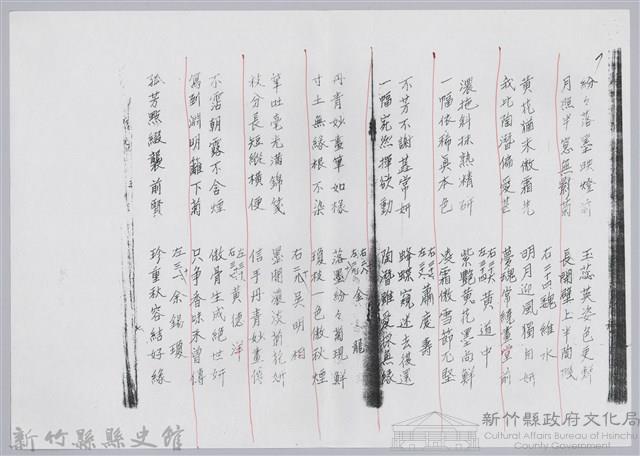 紛々落墨映燈前 玉蕊英姿色更鮮
月照半窓無影菊 長開壁上半簡
黃花猶未傲霜先 明月迎風獨自妍
我比陶潛偏愛甚 夢魂常繞畫堂前
右二十四魏維水
左 黃道中
濃拖斜抹熟精研 紫艷黃花墨尚鮮
一幅依稀真本色 凌霜傲雪節尤堅
蕭慶壽
不芳不謝甚常妍 蜂蝶窺迷去復還
一幅宛然揮欲動 陶潛雖愛
龍
丹青妙畫筆如椽 落墨紛々菊現鮮
寸土無緣根不染 瓊枝一色傲秋煙
右二九吳明相
筆吐毫光滿錦箋 墨開濃淡菊花妍
枝分長短縱橫便 信手丹青妙畫傳
黃德洋
不霑朝露不含煙 傲骨生成絕世妍
寫到淵明籬下菊 只爭香味未曾傳
左三 余錫瓊
孤芳點綴襲前賢 珍重秋容結好緣
新竹縣縣史館
新竹縣政府文化局
Cultural Affairs Bureau of Hsinchu
County Government